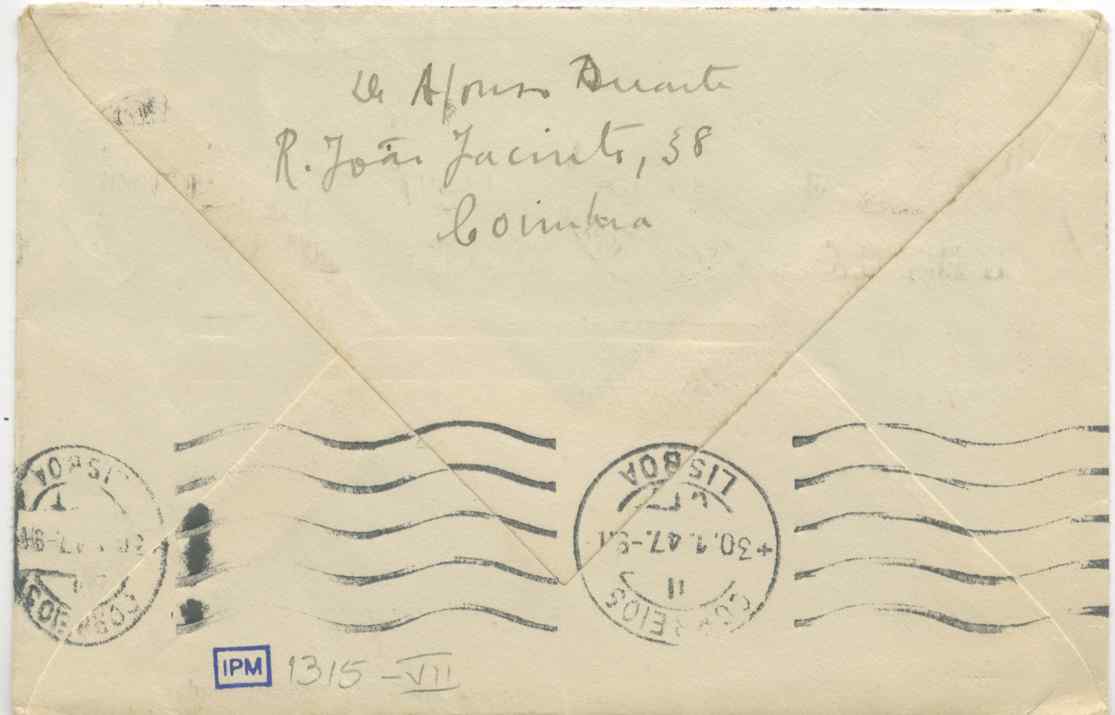 De Afonso Duarte
R. João Jacinto, 38
Coimbra
LISBOA
CORREIOS
LISBOA
+30.1.47.-9.H
11
CORREIOS
IPM 1315-VII